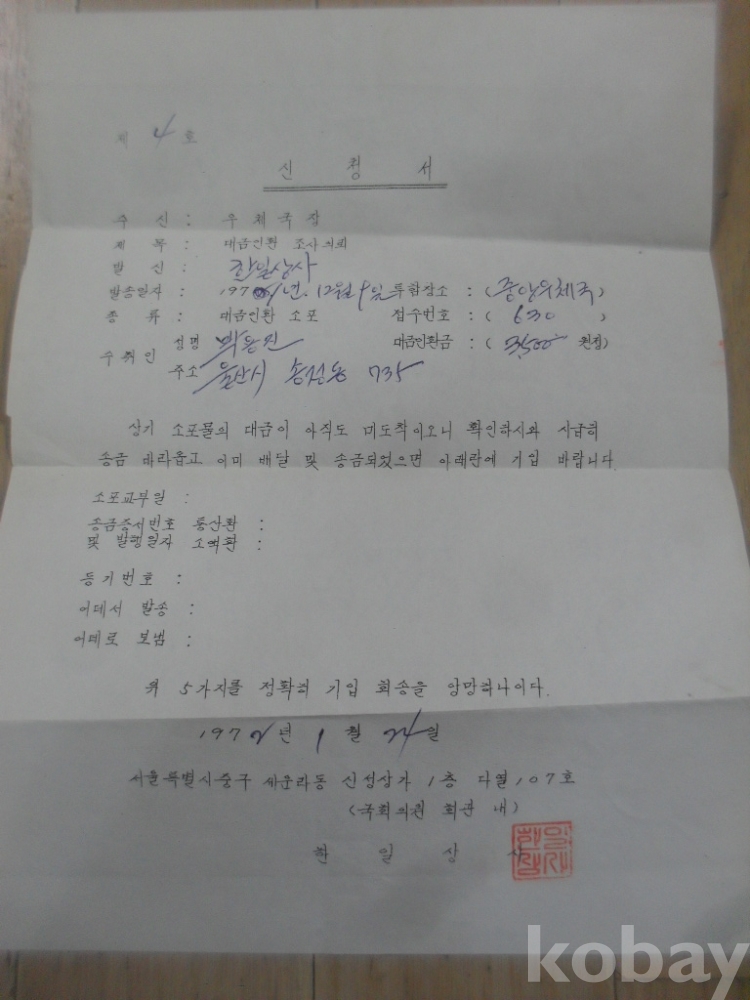 제 4 호
신 청 서
수 신 : 우 체 국 장
제 목 : 대금인환 조사의뢰
발 신 : 한일상사
발송일자 : 1971년. 12월 9일 투함장소 : (중앙우체국)
종 류 : 대금인환 소포 접수번호 : ( 630 )
수취인 성명 대금인환금 : ( 3,500 원정)
주소 울산시 송정동 735
상기 소포물의 대금이 아직도 미도착이오니 확인하시와 시급히
송금 바라옵고 이미 배달 및 송금되었으면 아래란에 기입 바랍니다
소포교부일 :
송금증서번호 통산환 :
및 발행일자 소액환 :
등기번호 :
어데서 발송 :
어데로 보냄 :
위 5가지를 정확히 기입 회송을 앙망하나이다.
1972년 1월 24일
서울특별시중구 세운라동 신성상가 1층 다열107호
(국회의원 회관 내)
한 일 상 사
kobay